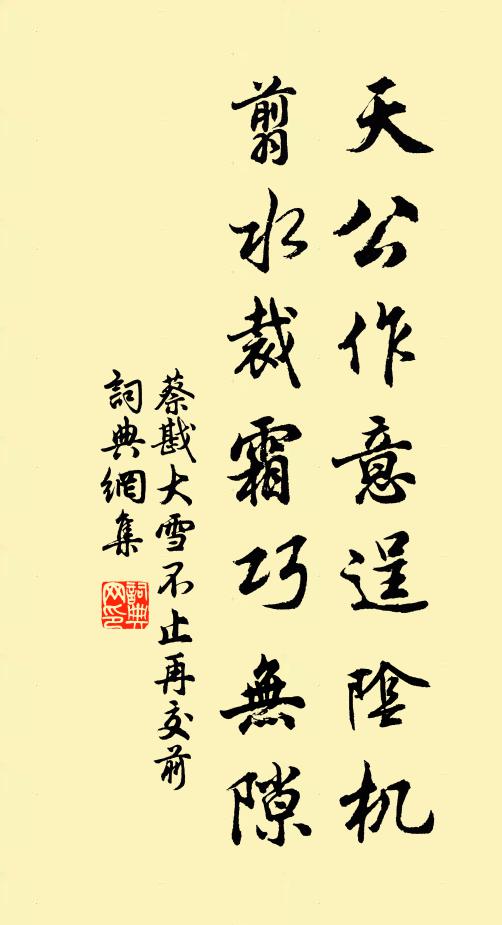 天公作意逞陰机
翦水裁霜巧無隙
蔡戡大雪不止再交前
詞典網集
詞典網印